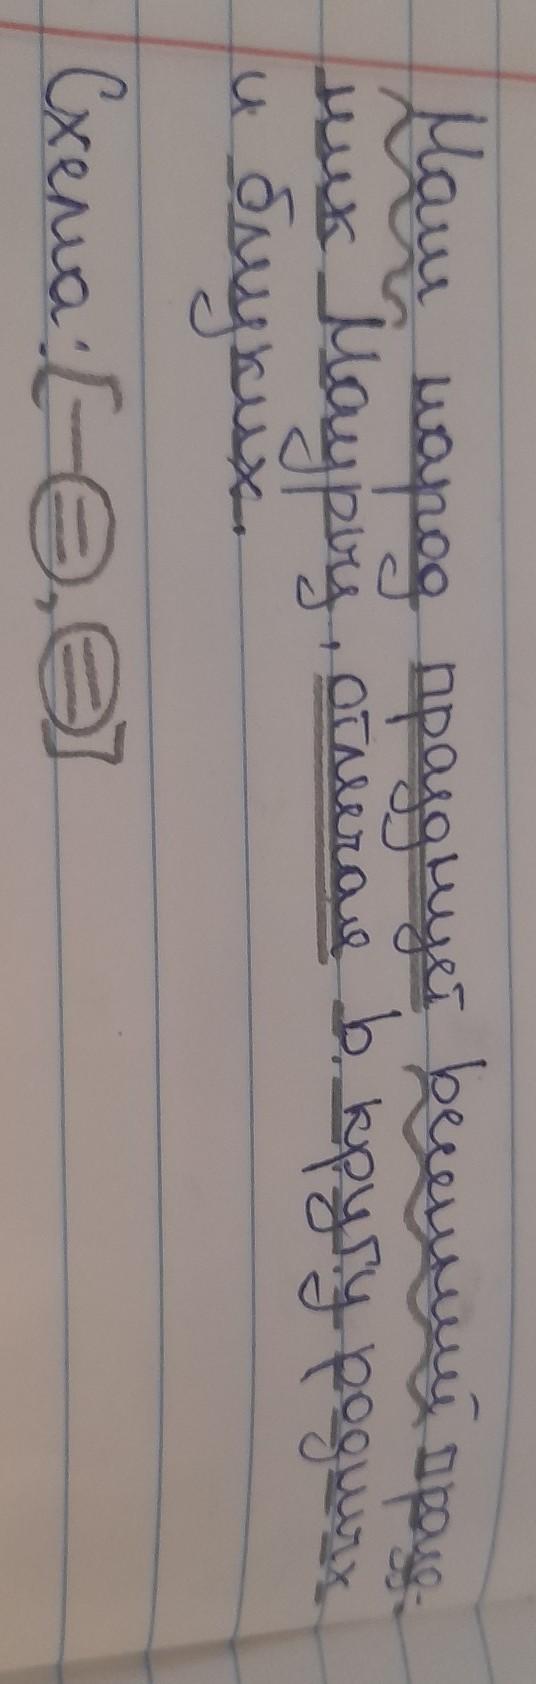 Наш народ празднует весенний празд-
ник Наурыз, отмечая в кругу родных
и близких.
Схема: [— =, =]